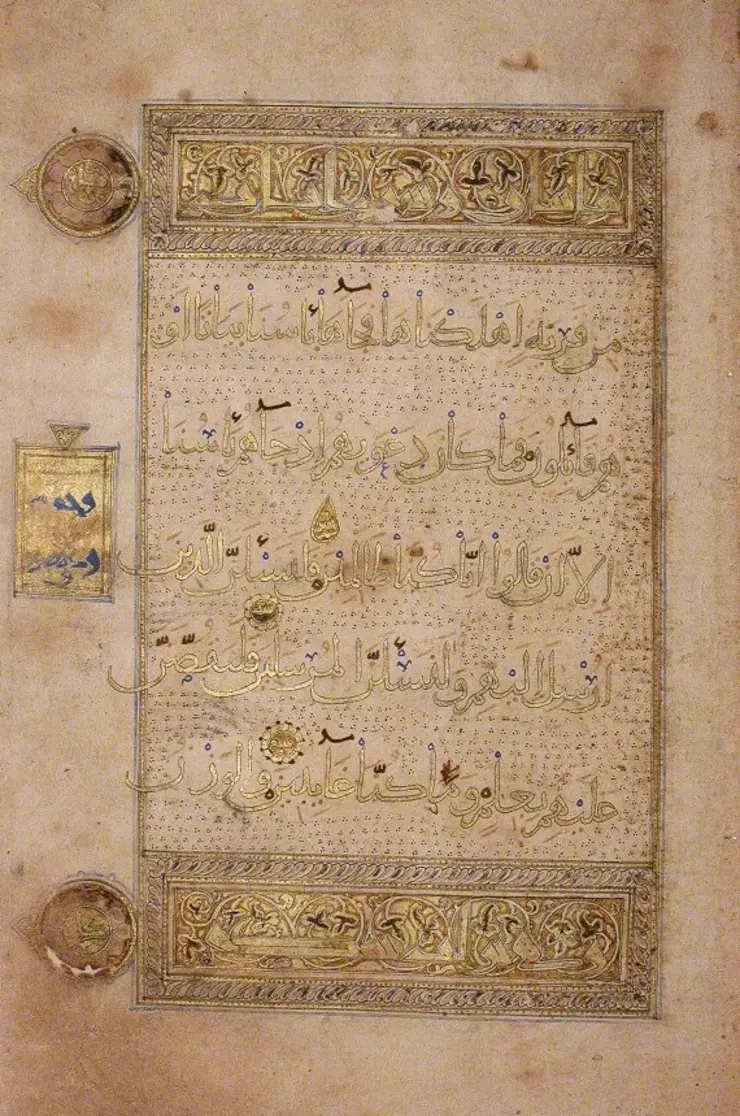 من قرية أهلكناها فجآءها بأسنا بياتا أو
هم قآئلون فما كان دعويهم إذ جآءهم بأسنا
إلّا أن قالوا إنّا كنّا ظالمين فلنسئلنّ الّذين
أرسل إليهم ولنسئلنّ المرسلين فلنقصّنّ
عليهم بعلم وما كنّا غآئبين والوزن